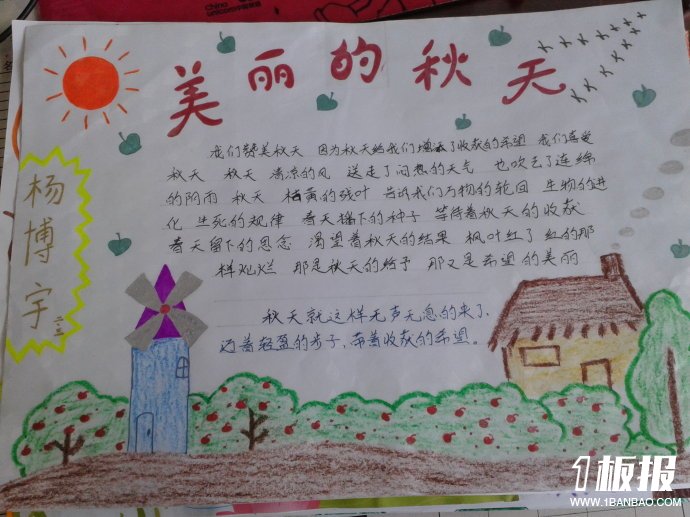 China
unicom中国联通
美丽的秋天
我们赞美秋天 因为秋天给我们增添了收获的希望 我们喜爱
秋天 秋天 清凉的风 送走了闷热的天气 也吹去了连绵
的阴雨 秋天 枯黄的残叶 告诉我们万物的轮回 生物的进
化 生死的规律 春天播下的种子 等待着秋天的收获
春天留下的思念 渴望着秋天的结果 枫叶红了 红的那
样灿烂 那是秋天的给予 那又是希望的美丽
秋天就这样无声无息的来了,
迈着轻盈的步子,带着收获的希望。
杨博宇
二·三
1板报
WWW.1BANBAO.COM